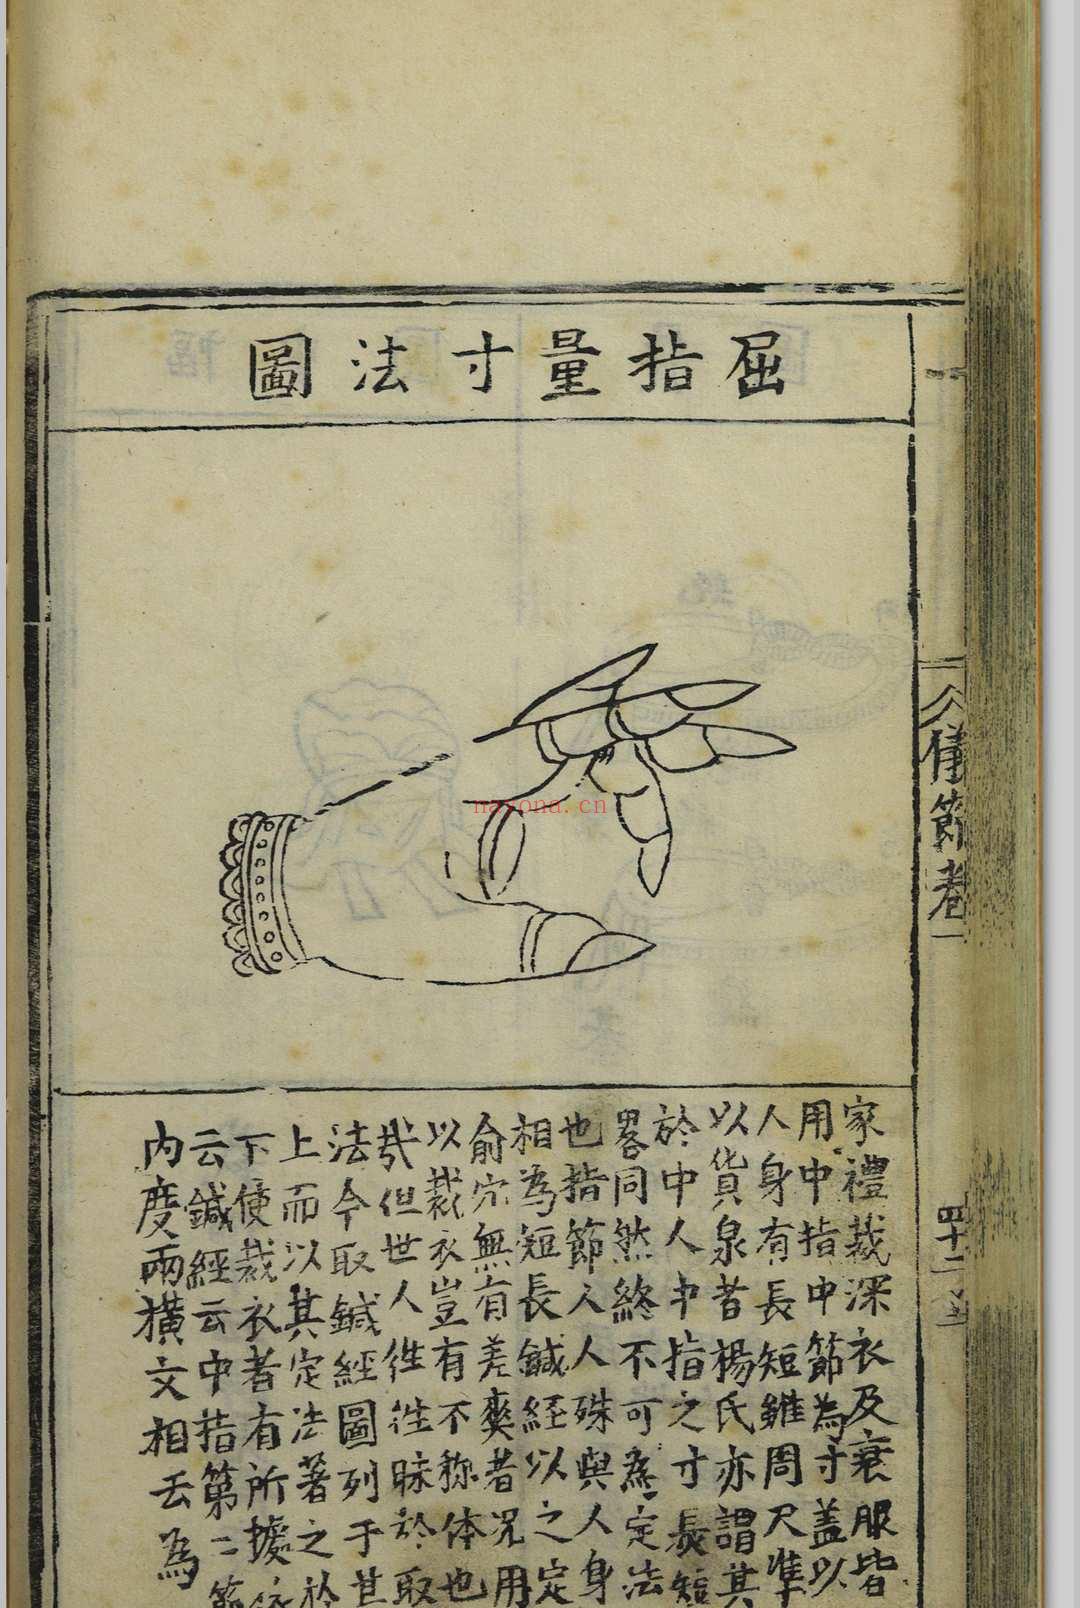 屈指量寸法圖
家禮裁深衣及衰服皆
用中指中節為寸盖以
人身有長短雖周尺準
以貨泉者楊氏亦謂其
於中人中指之寸長短
畧同然終不可為定法
也指節人人殊與人身
相為短長鍼経以之定
俞穴無有差爽者况用
以裁衣豈有不称体也
㢤但世人徃徃昧於取
法今取鍼經圖列于其
上而以其定法著之於
下使裁衣者有所據依
云鍼經云中指第二節
内度兩横文相去為
儀節卷一
四十二
nayona.cn